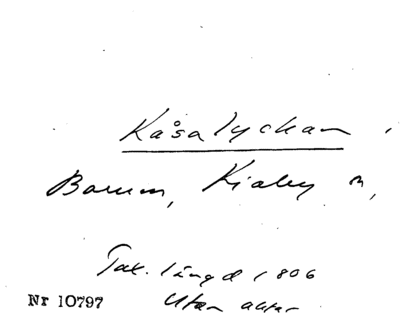 Kåsalyckan
Barum, Kiaby sn,
Tax. längd 1806
Nr 10797 Utan aktar